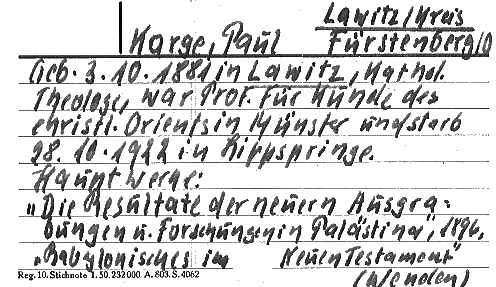 Lawitz/Kreis
Karge, Paul Fürstenberg/O
Geb. 3.10.1881 in Lawitz, Kathol.
Theologe, war Prof. für Kunde des
christl. Orients in Münster und starb
28.10.1922 in Lippspringe.
Hauptwerke:
"Die Resultate der neuern Ausgra-
bungen u. Forschungen in Palästina", 1896,
"Babylonisches im Neuen Testament"
Reg. 10. Stichnote 1. 50. 232 000. A. 803. S. 4062
(wenden)